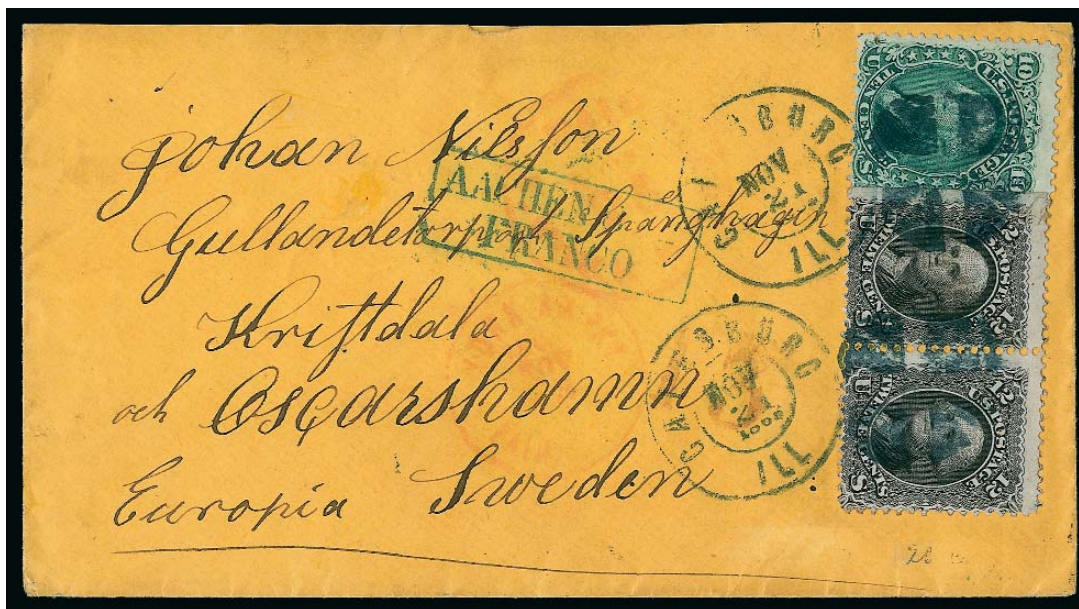 Johan Nilsson
Gullandetorpah Spånghagin
Kristdala
och Oscarshamn
Sweden
Europia
AACHEN
FRANCO
GALESBURG
NOV
21
ILL
GALESBURG
NOV
21
ILL
U.S. POSTAGE
TEN CENTS
10
U.S. POSTAGE
TWELVE CENTS
12
U.S. POSTAGE
TWELVE CENTS
12